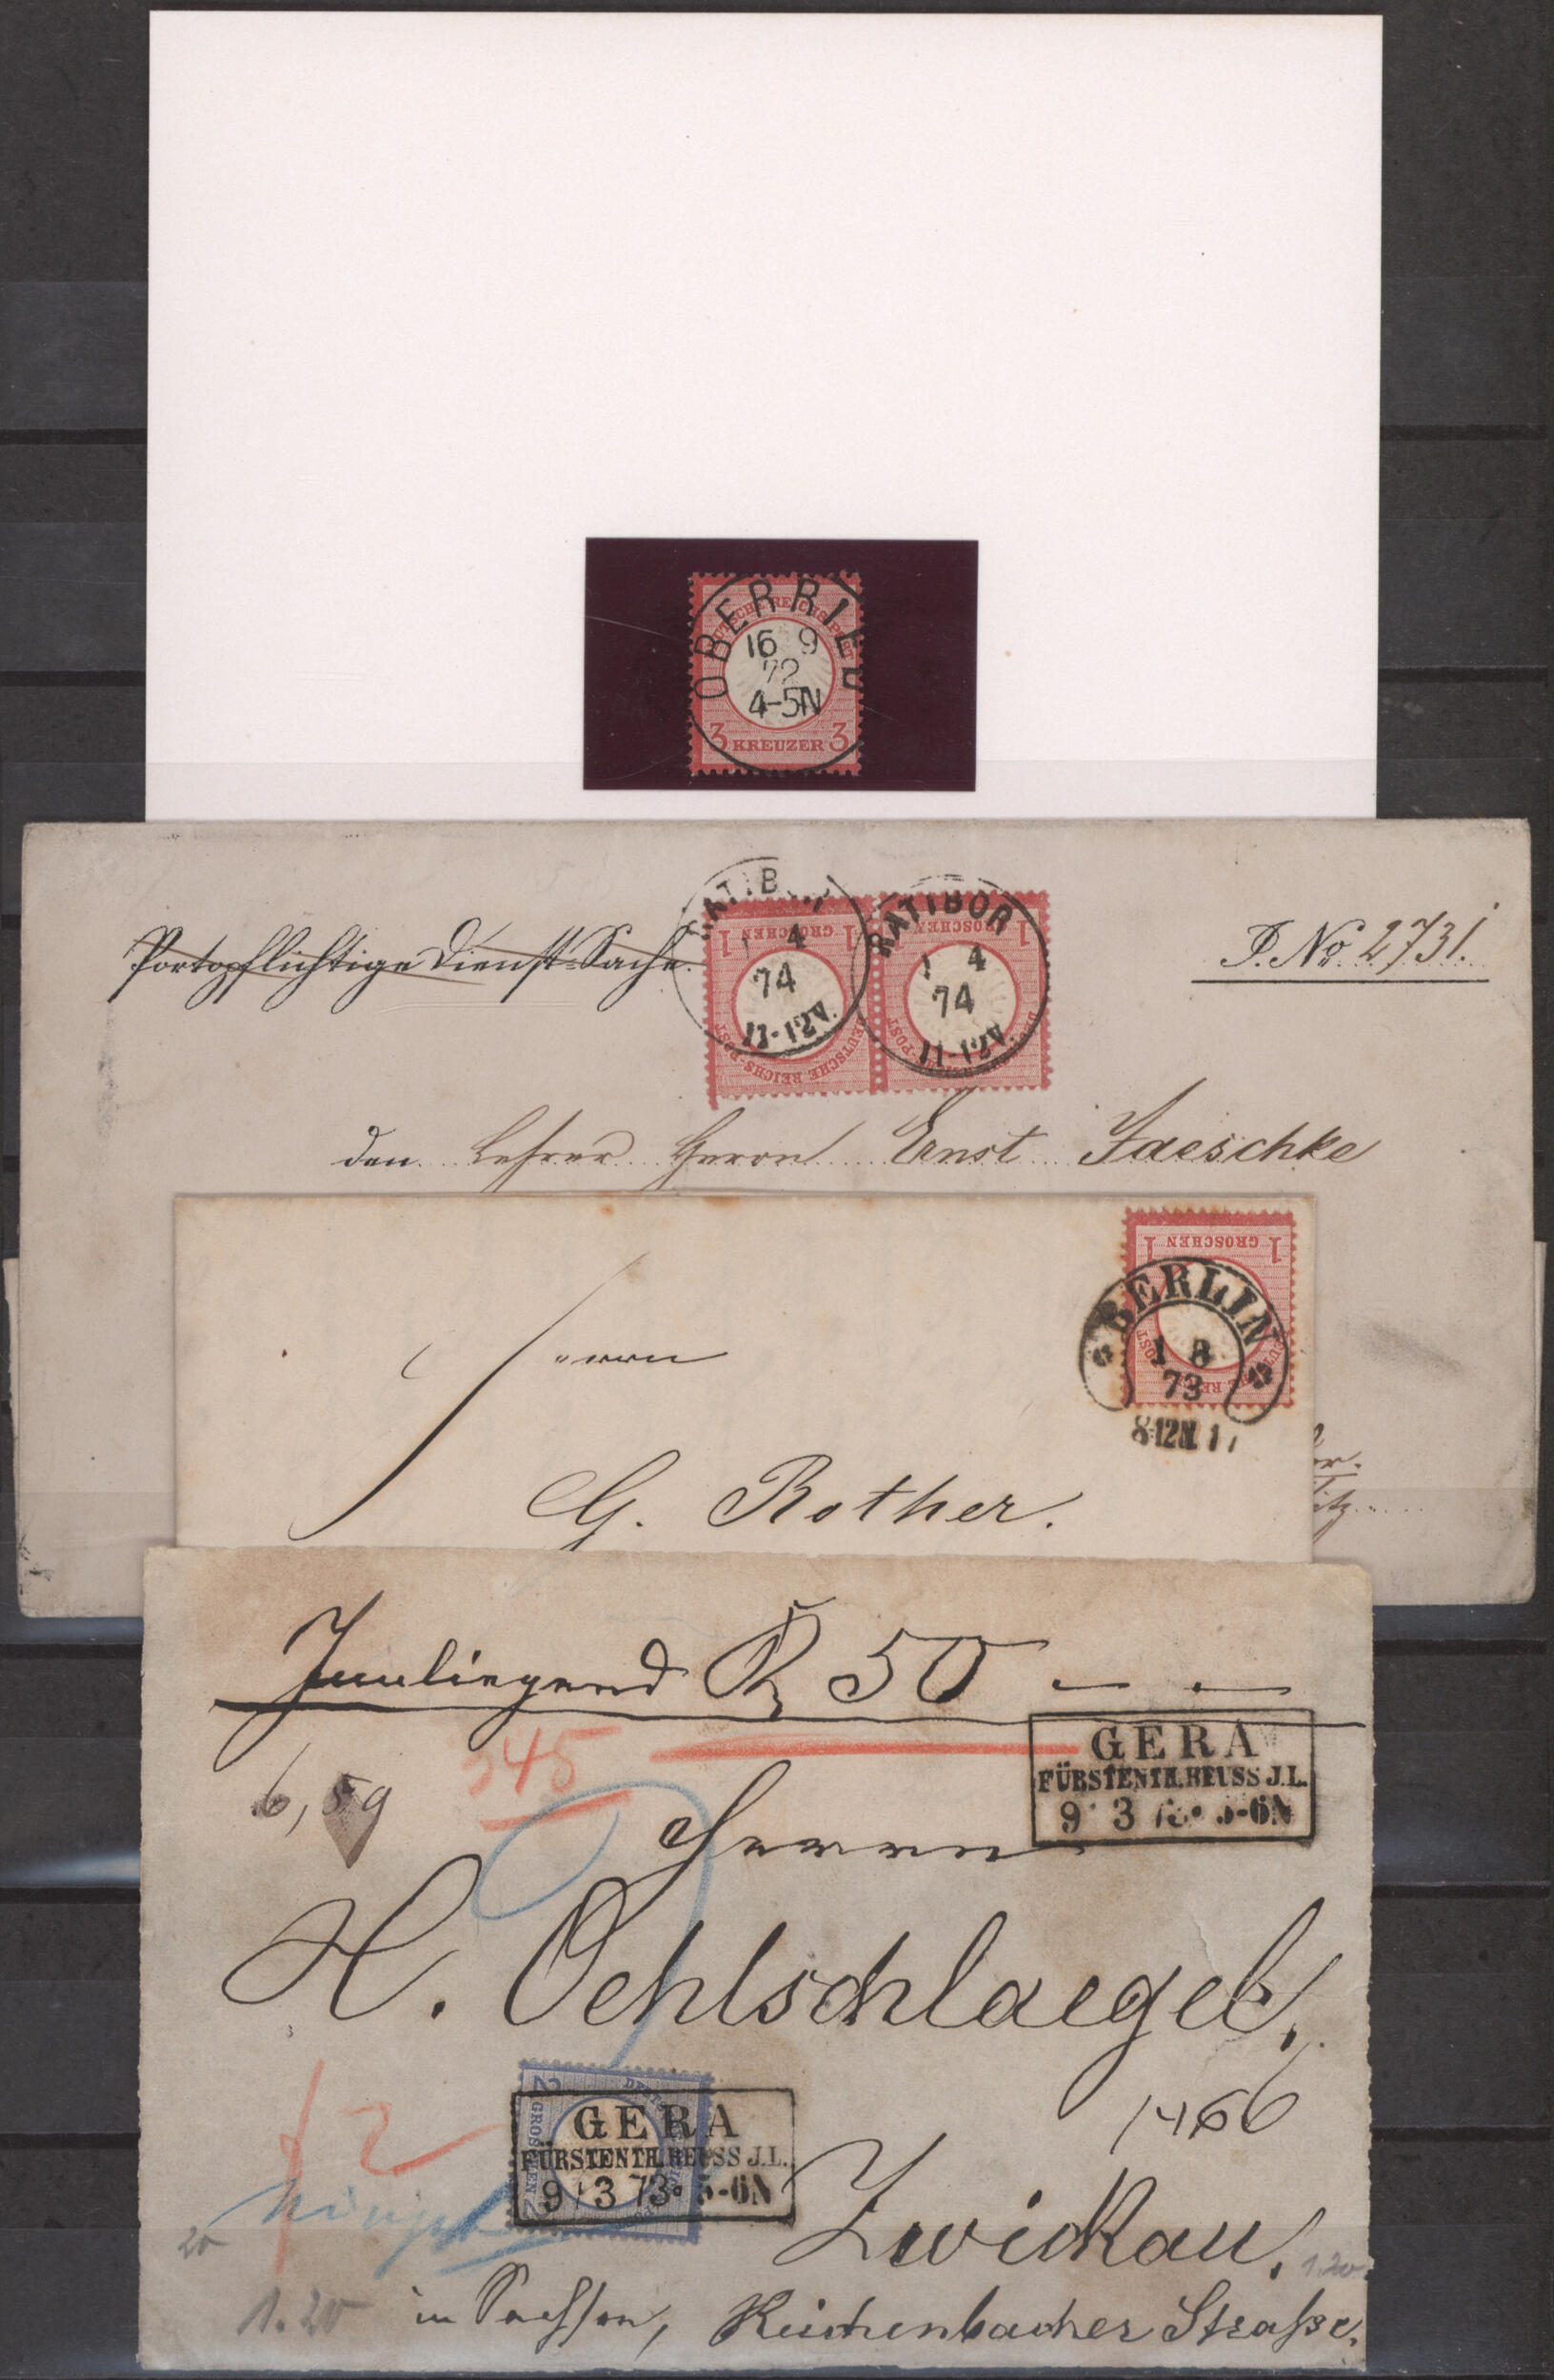 OBERRIED
DEUTSCHE REICHS-POST
16 9
72
4-5N
3 KREUZER 3
Portopflichtige Dienst-Sache.
RATIBOR
1 4
74
11-12V.
1 GROSCHEN 1
DEUTSCHE REICHS-POST
RATIBOR
1 4
74
11-12V.
GROSCHEN 1
J. No 2731.
den Lehrer Herrn Ernst Jaeschke
1 GROSCHEN 1
BERLIN
73
Herrn
G. Rother.
Innliegend 50 — —
GERA
FÜRSTENTH. REUSS J.L.
9 3 73 5-6N
345
6,5g
Herrn
H. Oehlschlaegel,
1466
2 GROSCHEN 2
GERA
FÜRSTENTH. REUSS J.L.
9 3 73 5-6N
Zwickau,
20
1.20
1.20
in Sachsen, Reichenbacher Straße.